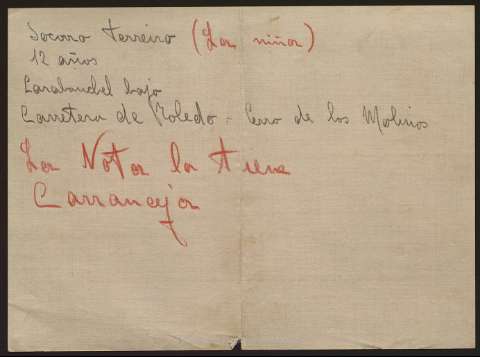 Socorro Ferreiro (La niña)
12 años
Carabanchel bajo
Carretera de Toledo - Cerro de los Molinos
La Nota la tiene
Carranceja